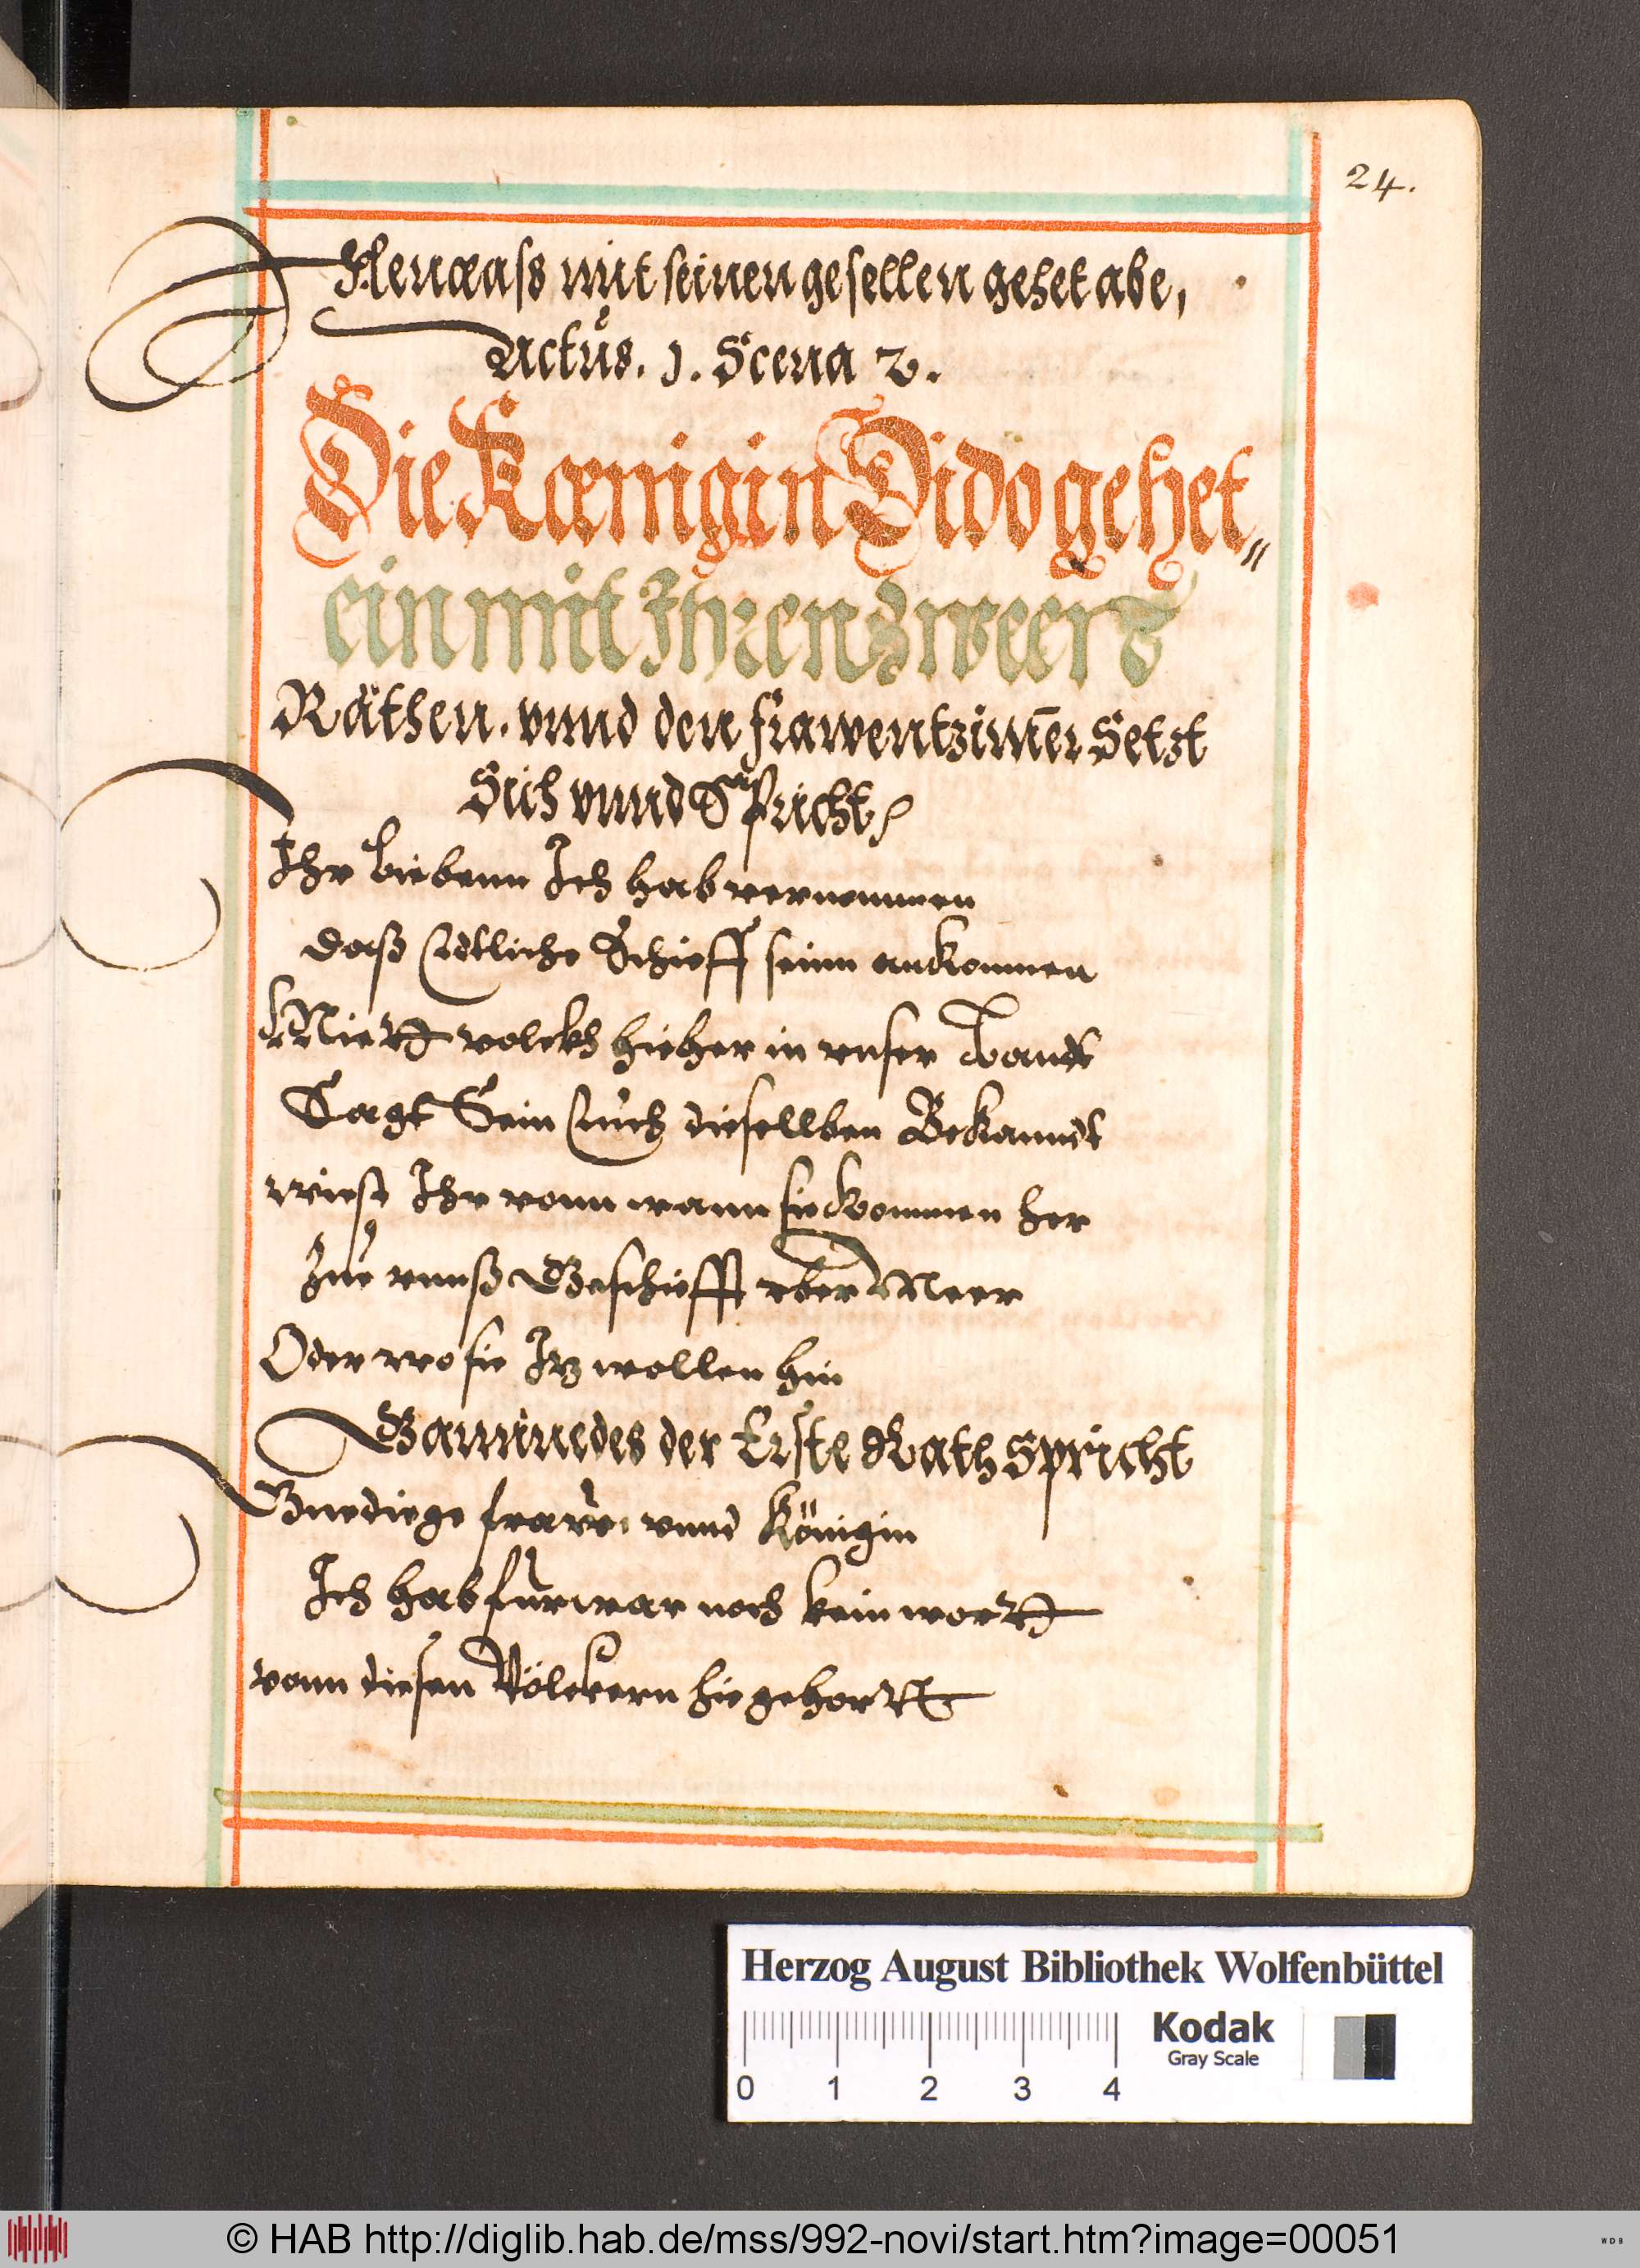 24.
Aenæass mit seinen gesellen gehet abe,
Actus. 1. Scena 2.
Die Kœnigin Dido gehet
ein mit Ihren zween
Räthen. vnnd den frawentzimer Setzt
Sich vnnd Spricht
Ihr liebenn Ich hab vernommen
daß Etliche Schieff seinn ankommen
Mit volckh hieher in vnser Landt
Sagt Sein Euch diesellben Bekanndt
wiest Ihr vonn wann sie kommen her
Zue vnnß Geschifft vber Meer
Oder wo sie Itz wollen hin
Ganimedes der Erste Rath Spricht
Gnediege frawe vnnd Königin
Ich hab fürwar noch kein wortt
vonn diesen Völckern hie gehortt
Herzog August Bibliothek Wolfenbüttel
Kodak
Gray Scale
0 1 2 3 4
© HAB http://diglib.hab.de/mss/992-novi/start.htm?image=00051
WDB